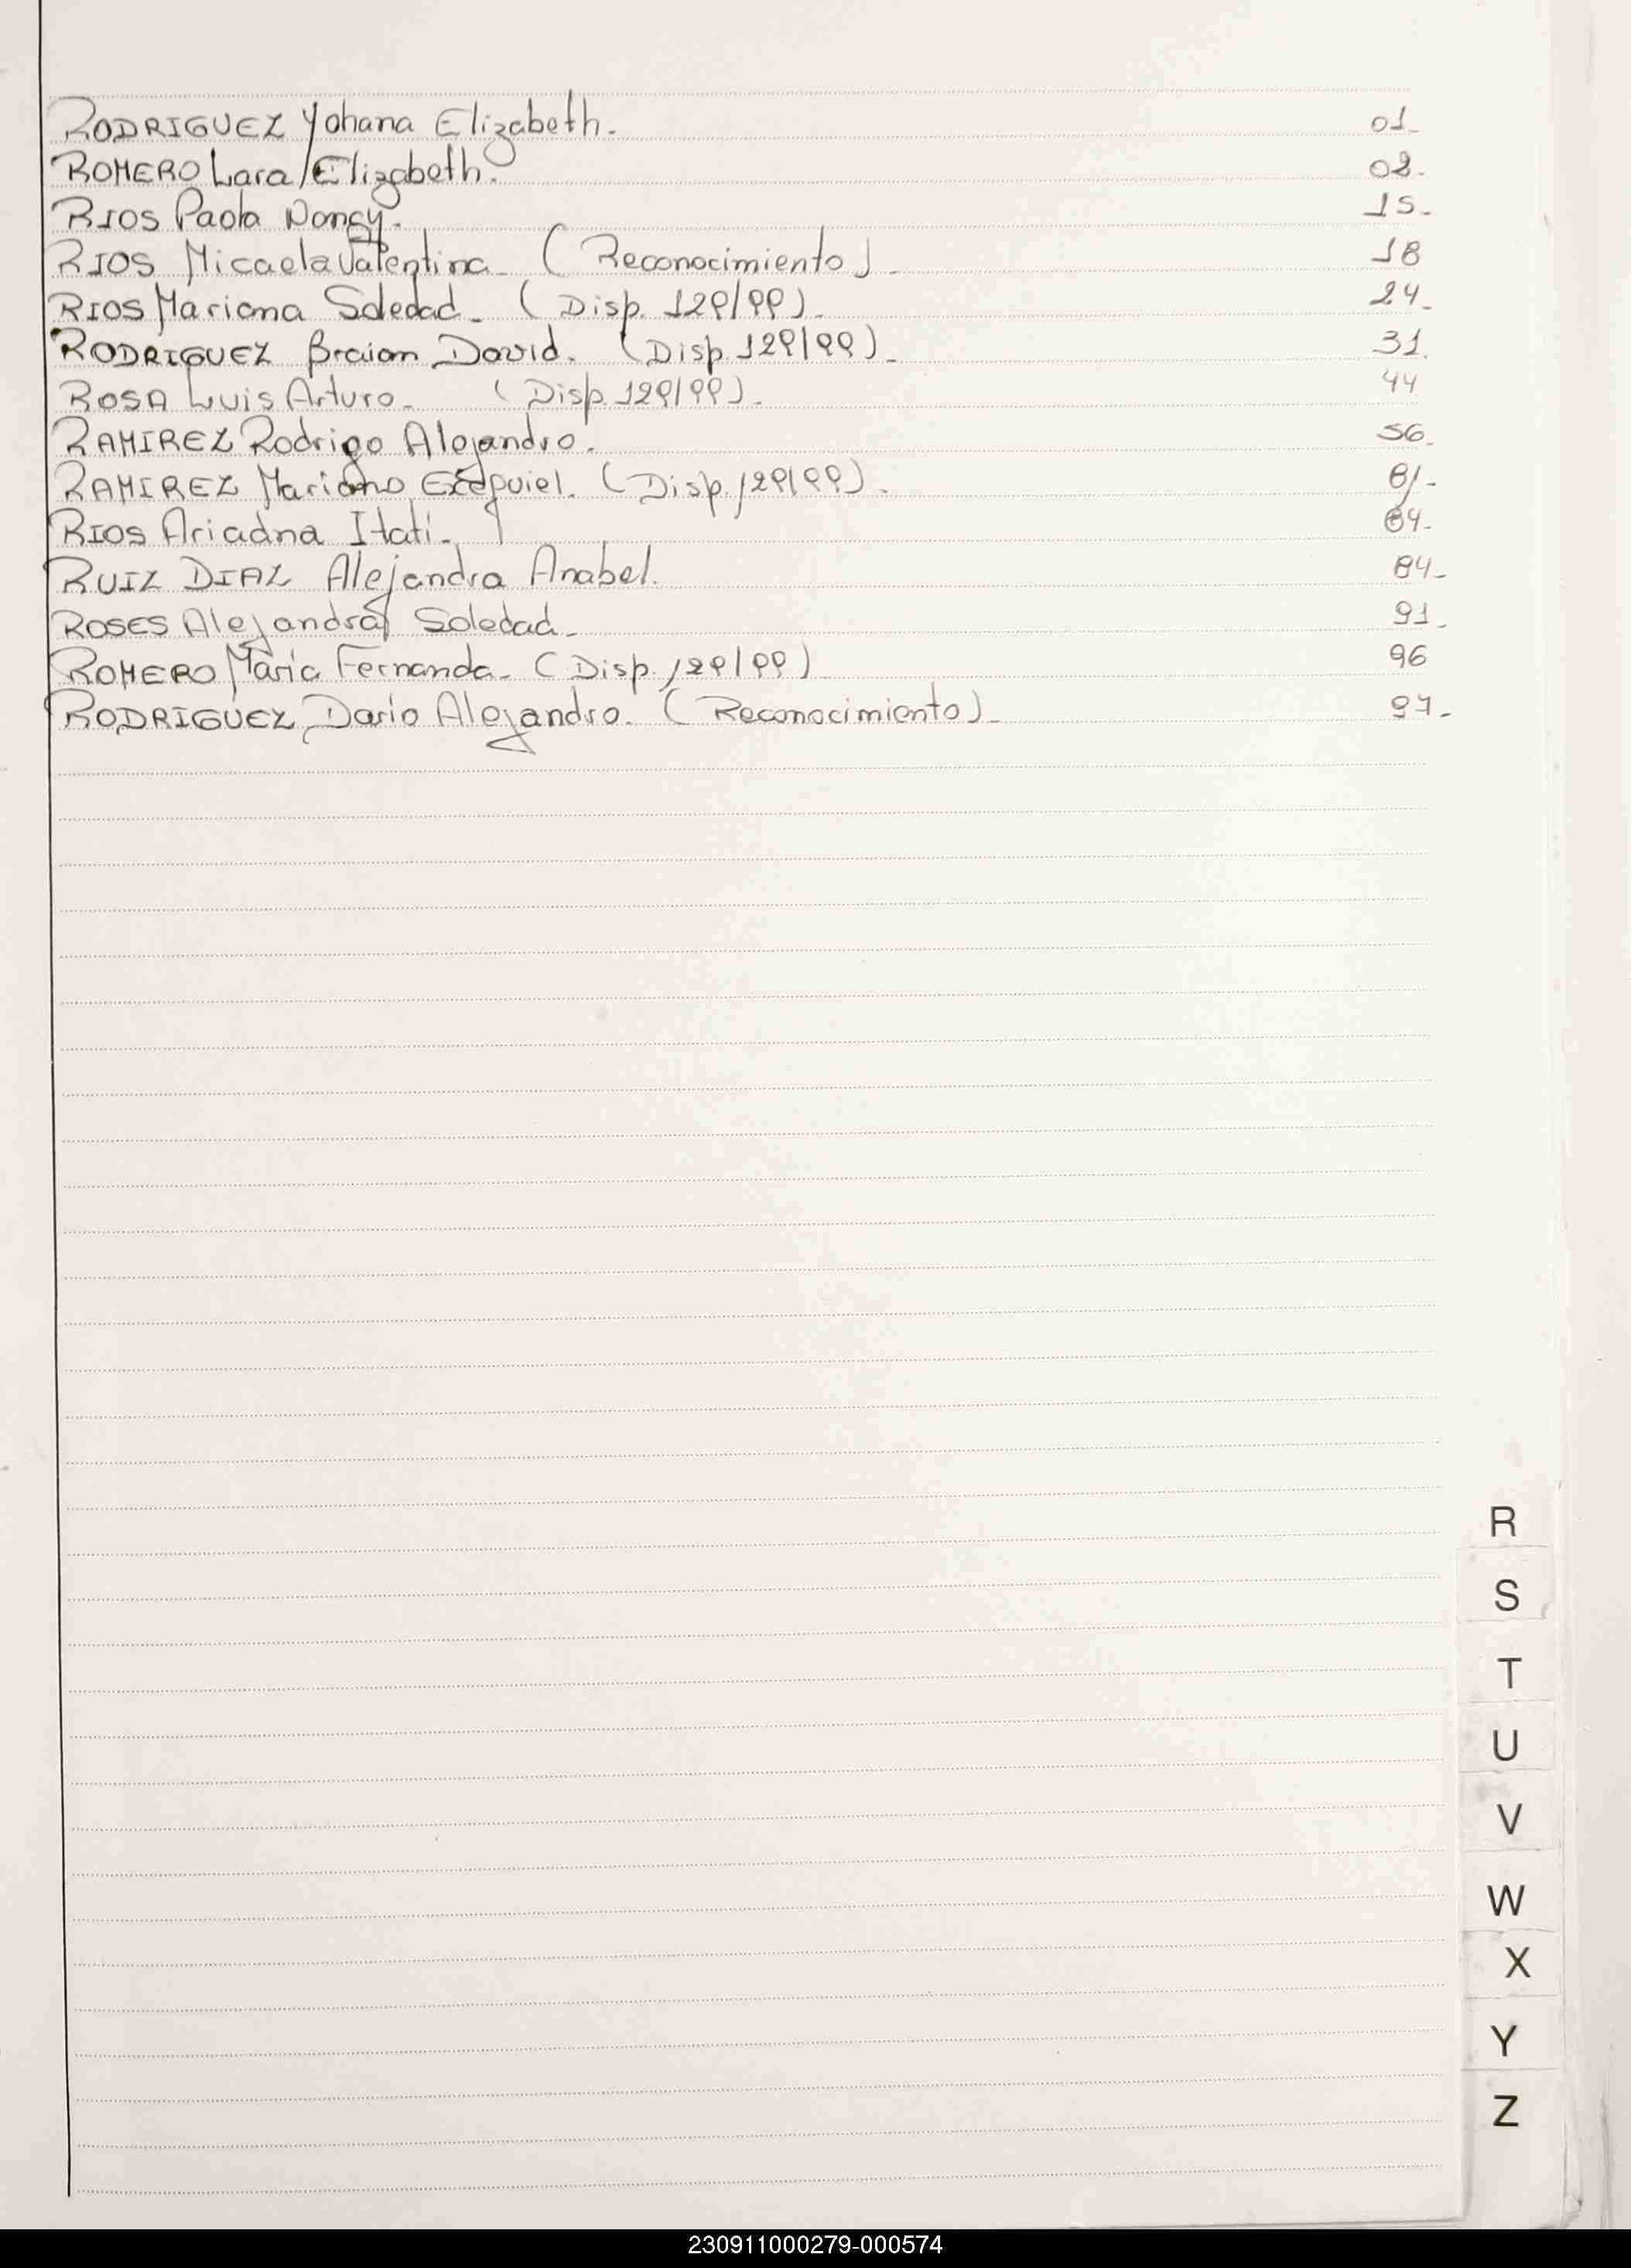 RODRIGUEZ Yohana Elizabeth. 01-
ROMERO Lara Elizabeth. 02.
RIOS Paola Nancy. 15-
RIOS Micaela Valentina - (Reconocimiento) - 18
RIOS Mariana Soledad - (Disp. 129/99). 24-
RODRIGUEZ Braian David. (Disp. 129/99) - 31.
ROSA Luis Arturo - (Disp. 129/99). 44
RAMIREZ Rodrigo Alejandro. 56-
RAMIREZ Mariano Ezequiel. (Disp. 129/99). 81-
RIOS Ariadna Itati -
RUIZ DIAZ Alejandra Anabel. 84-
ROSES Alejandra Soledad - 91-
ROMERO María Fernanda - (Disp. 129/99) 96
RODRIGUEZ Darío Alejandro. (Reconocimiento) - 97-
R
S
T
U
V
W
X
Y
Z
230911000279-000574